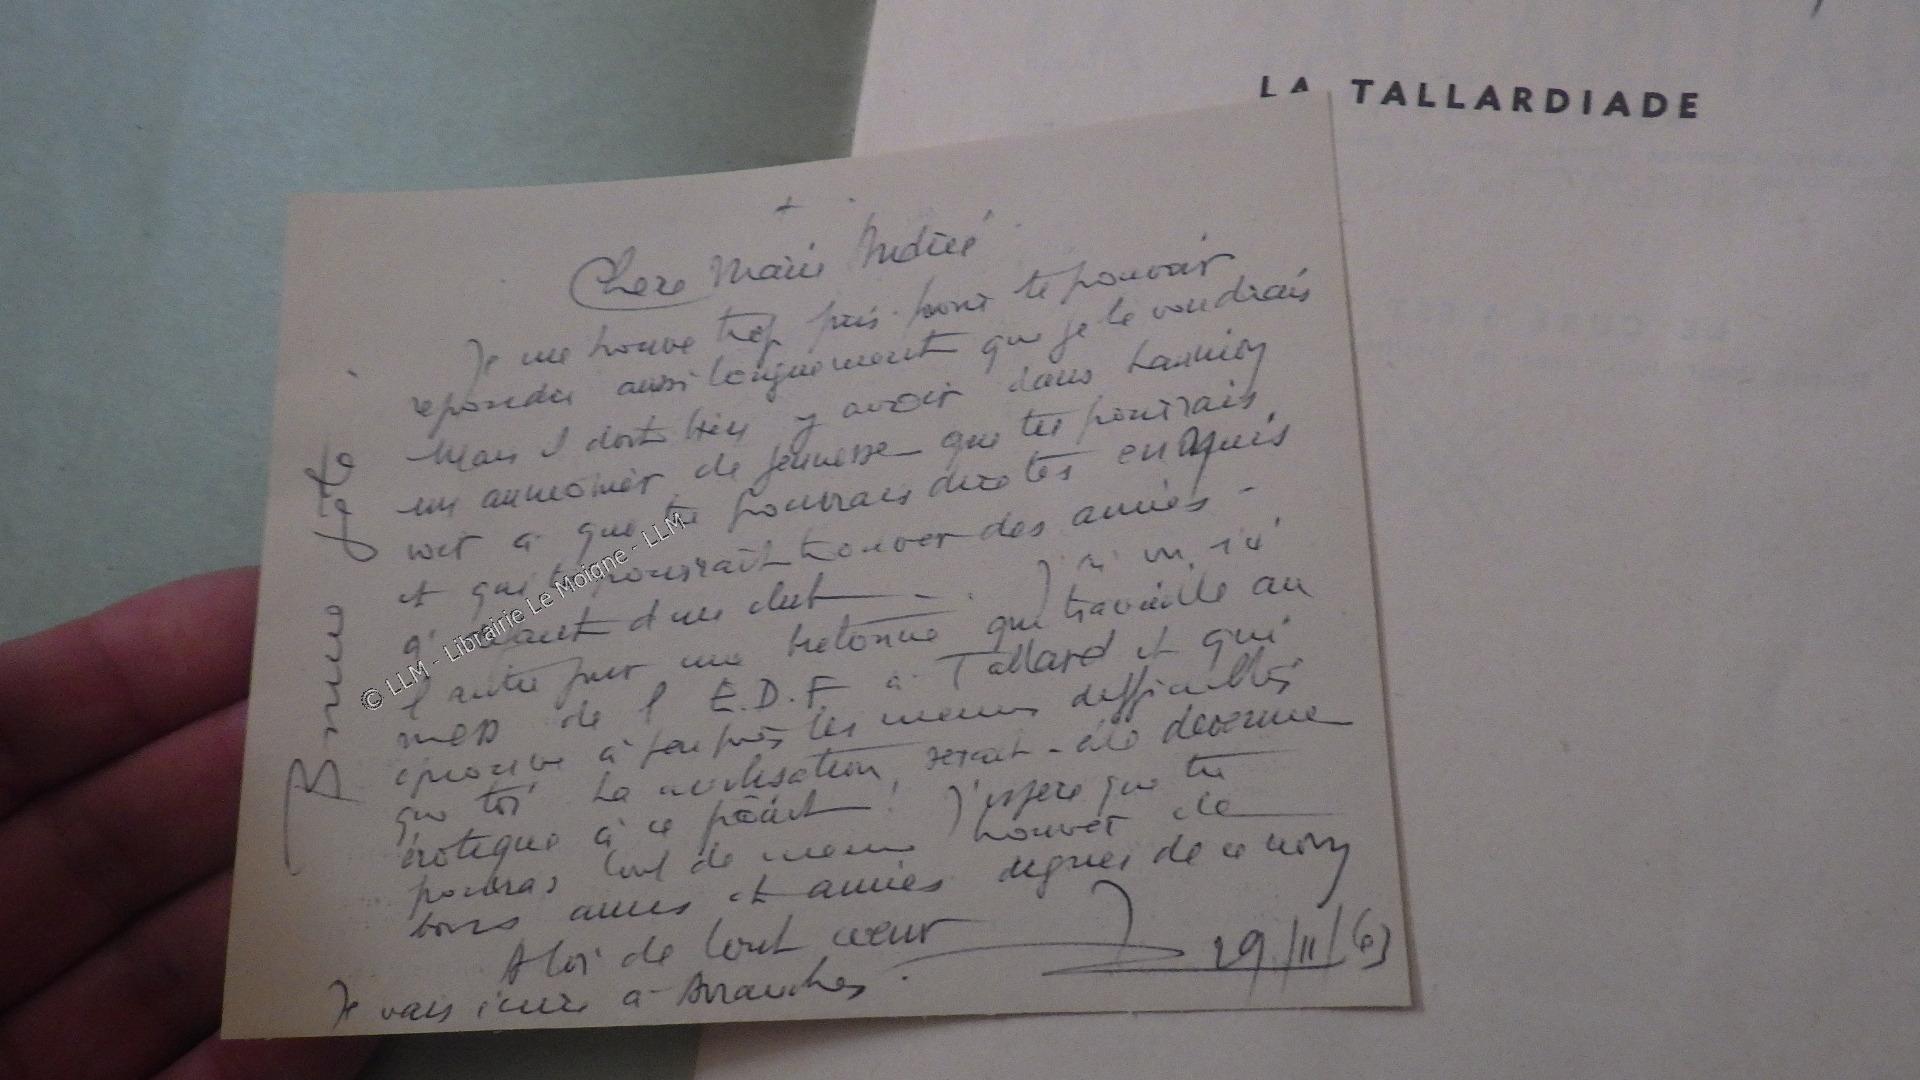 LA TALLARDIADE
+
Chere Marie Andrée
Je me trouve trop pris pour te pouvoir
repondre aussi longuement que je le voudrais
Mais il doit bien y avoir dans Lannion
un aumonier de jeunesse que tu pourrais
voir à qui tu pourrais dire tes ennuis
et qui te pourrait trouver des amies -
d'un club - J'ai vu
l'autre jour une bretonne qui travaille au
mess de l' E.D.F à Tallard et qui
eprouve à peu près les memes difficultés
que toi La civilisation, serait-elle devenue
érotique à ce point! J'espere que tu
pourras tout de meme trouver de
bons amis et amies dignes de ce nom
A toi de tout coeur
29/11/63
Je vais ecrire à Avranches.
Bonne fête
© LLM - Librairie Le Moigne - LLM